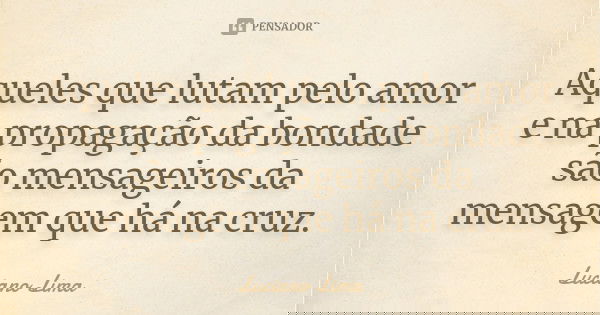 PENSADOR
Aqueles que lutam pelo amor
e na propagação da bondade
são mensageiros da
mensagem que há na cruz.
Luciano Lima